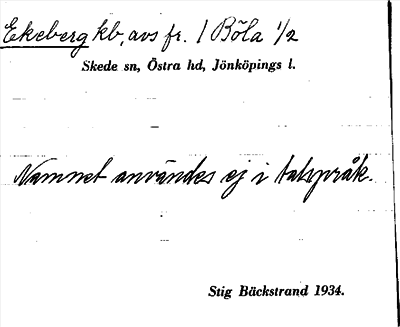 Ekeberg kb, avs fr. 1 Böla 1/2
Skede sn, Östra hd, Jönköpings l.
Namnet användes ej i talspråk.
Stig Bäckstrand 1934.